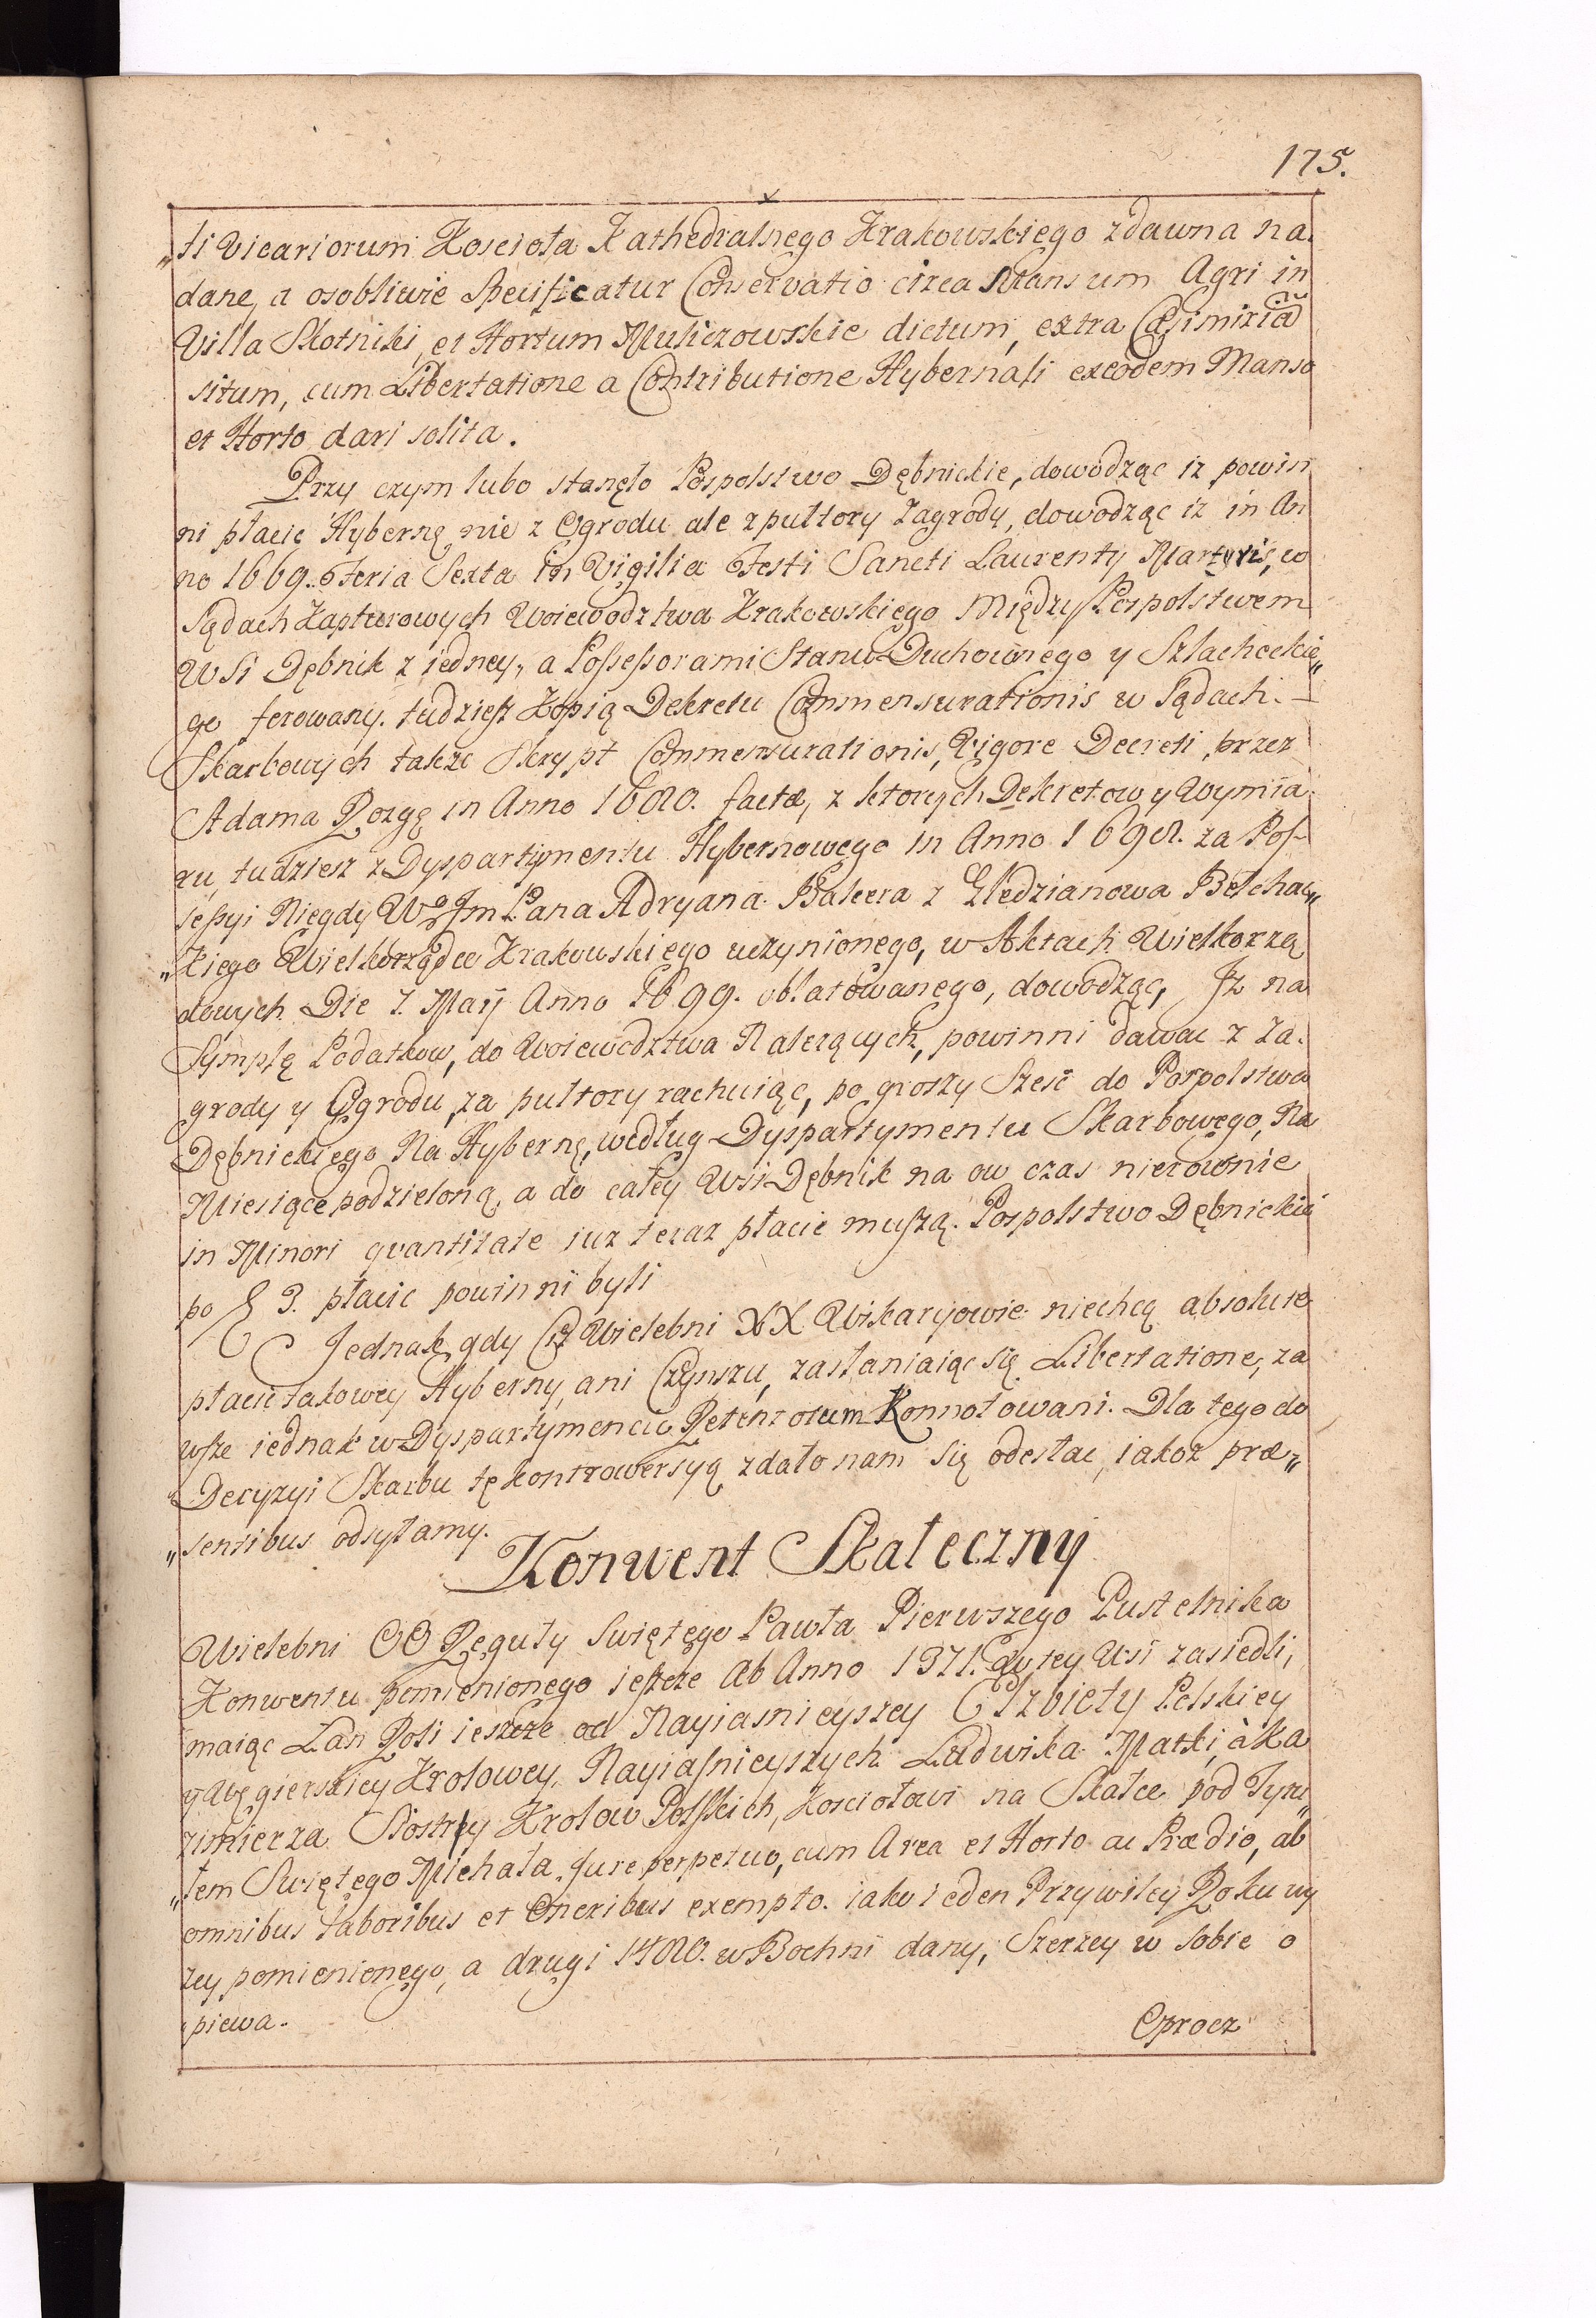 175.
„ti Vicariorum Kosciola Kathedralnego Krakowskiego zdawna na.
dane, a osobliwie Specificatur Conservatio circa Mansum Agri in
Villa Skotniki, et Hortum Muliczowskie dictum, extra Casimiriã
situm, cum Libertatione a Contributione Hybernali exeodem Manso
et Horto dari solita.
Przy czym lubo stanęło Pospolstwo Dębnickie, dowodząc iz powin
ni płacic Hybernę nie z Ogrodu ale z pułtory Zagrody, dowodząc iz in An
no 1669. Feria Sexta in Vigilia Festi Sancti Laurenty Martyris, w
Sądach Kapturowych Woiewodztwa Krakowskiego Między Pospolstwem
WSi Dębnik z iedney, a Possessorami Stanu Duchownego y Szlacheckie„
go ferowany. tudziesz Kopią Dekretu Commensurationis w Sądach. —
Skarbowych takze Skrypt Commensurationis, Vigore Decreti, przez
Adama Rozgę in Anno 1680. factæ, z ktorych Dekretow y Wymia.
ru, tudziesz z Dyspartymentu Hybernowego in Anno 1698. za Pos-
sessyi Niegdy Wo Jm Pana Adryana Balcera z Gledzianowa Belchac„
„kiego Wielkorządce Krakowskiego uczynionego, w Aktach Wielkorzą
dowych Die 7. Maij Anno 1699. oblatowanego, dowodząc, Jz na
Symplę Podatkow, do Woiewodztwa Nalezących, powinni dawac z Za.
grody y Ogrodu, za pułtory rachuiąc, po groszy Szesc do Pospolstwa
Dębnickiego Na Hybernę, według Dyspartymentu Skarbowego, Na
Miesiące podzieloną, a do całey WSi Dębnik na ow czas nierownie
in Minori quantitate iuz teraz płacic muszą. Pospolstwo Dębnickie
po 3. płacic powinni byli
Jednak gdy Ciz Wielebni XX Wikaryowie niechcą absolute
płacic takowey Hyberny, ani Czynszu, zasłaniaiąc się Libertatione, za
wsze iednak w Dyspartymencie Retentorum Konnotowani. Dla tego do
Decyzyi Skarbu tę kontrowersyą zdało nam się odesłac, iakoz præ„
„sentibus odsyłamy.
Konwent Skałeczny
Wielebni OO Reguły Swiętego Pawła Pierwszego Pustelnika
Konwentu pomienionego ieszcze Ab Anno 1371. w tey Wsi zasiedli,
maiąc Łan Roli ieszcze od Nayiasnieyszey Elzbiety Polskiey
y Węgierskiey Krolowey, Nayiasnieyszych Ludwika Matki, à Ka
zimierza Siostry Krolow Polskich, Kosciołowi na Skałce pod Tytu„
„łem Swiętego Michała, Jure perpetuo, cum Area et Horto ac Prædio, ab
omnibus laboribus et Oneribus exempto. iako ieden Przywiley Roku wy
zey pomienionego, a drugi 1480. w Bochni dany, Szerzey w sobie o
piewa.
Oprocz